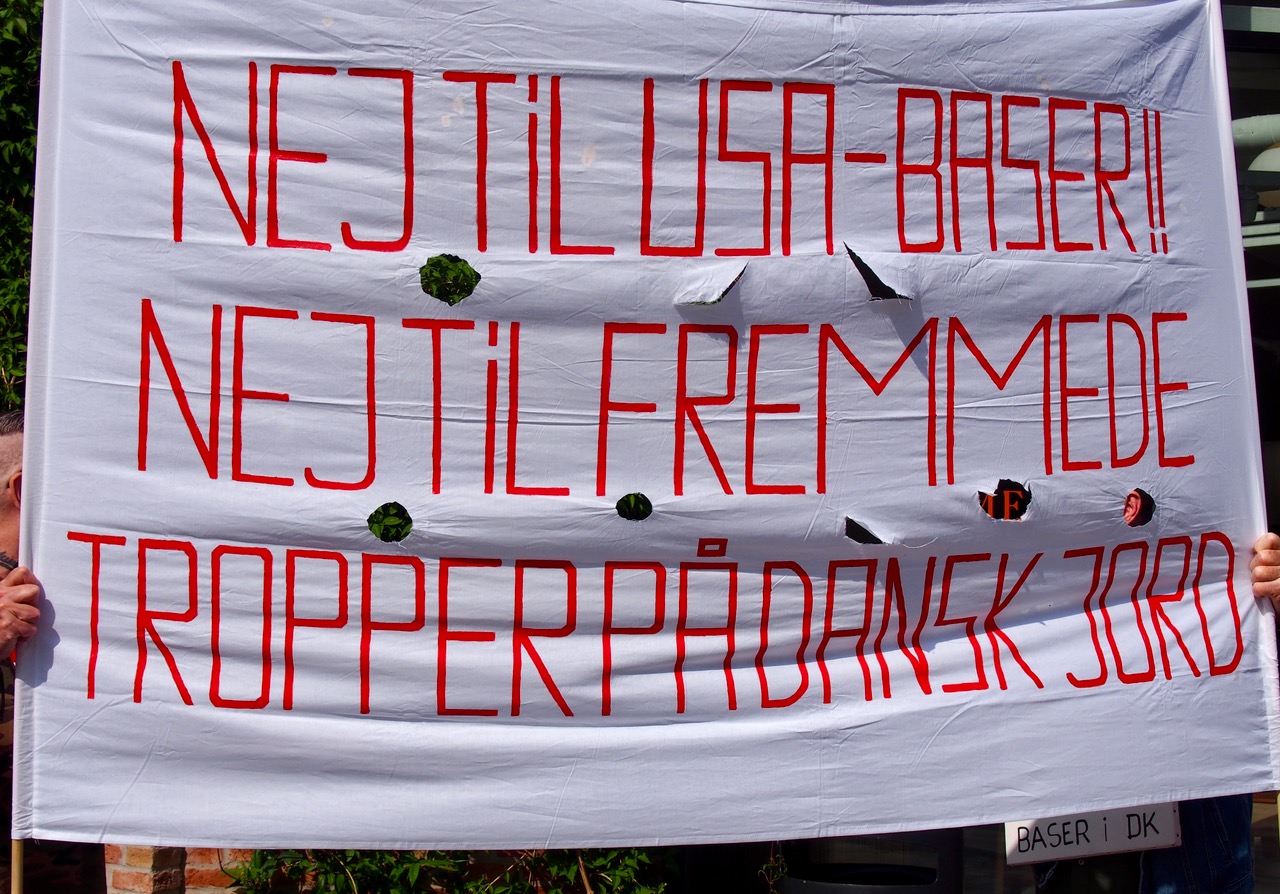 NEJ TiL USA-BASER!!
NEJ TiL FREMMEDE
TROPPER PÅ DANSK JORD
BASER i DK